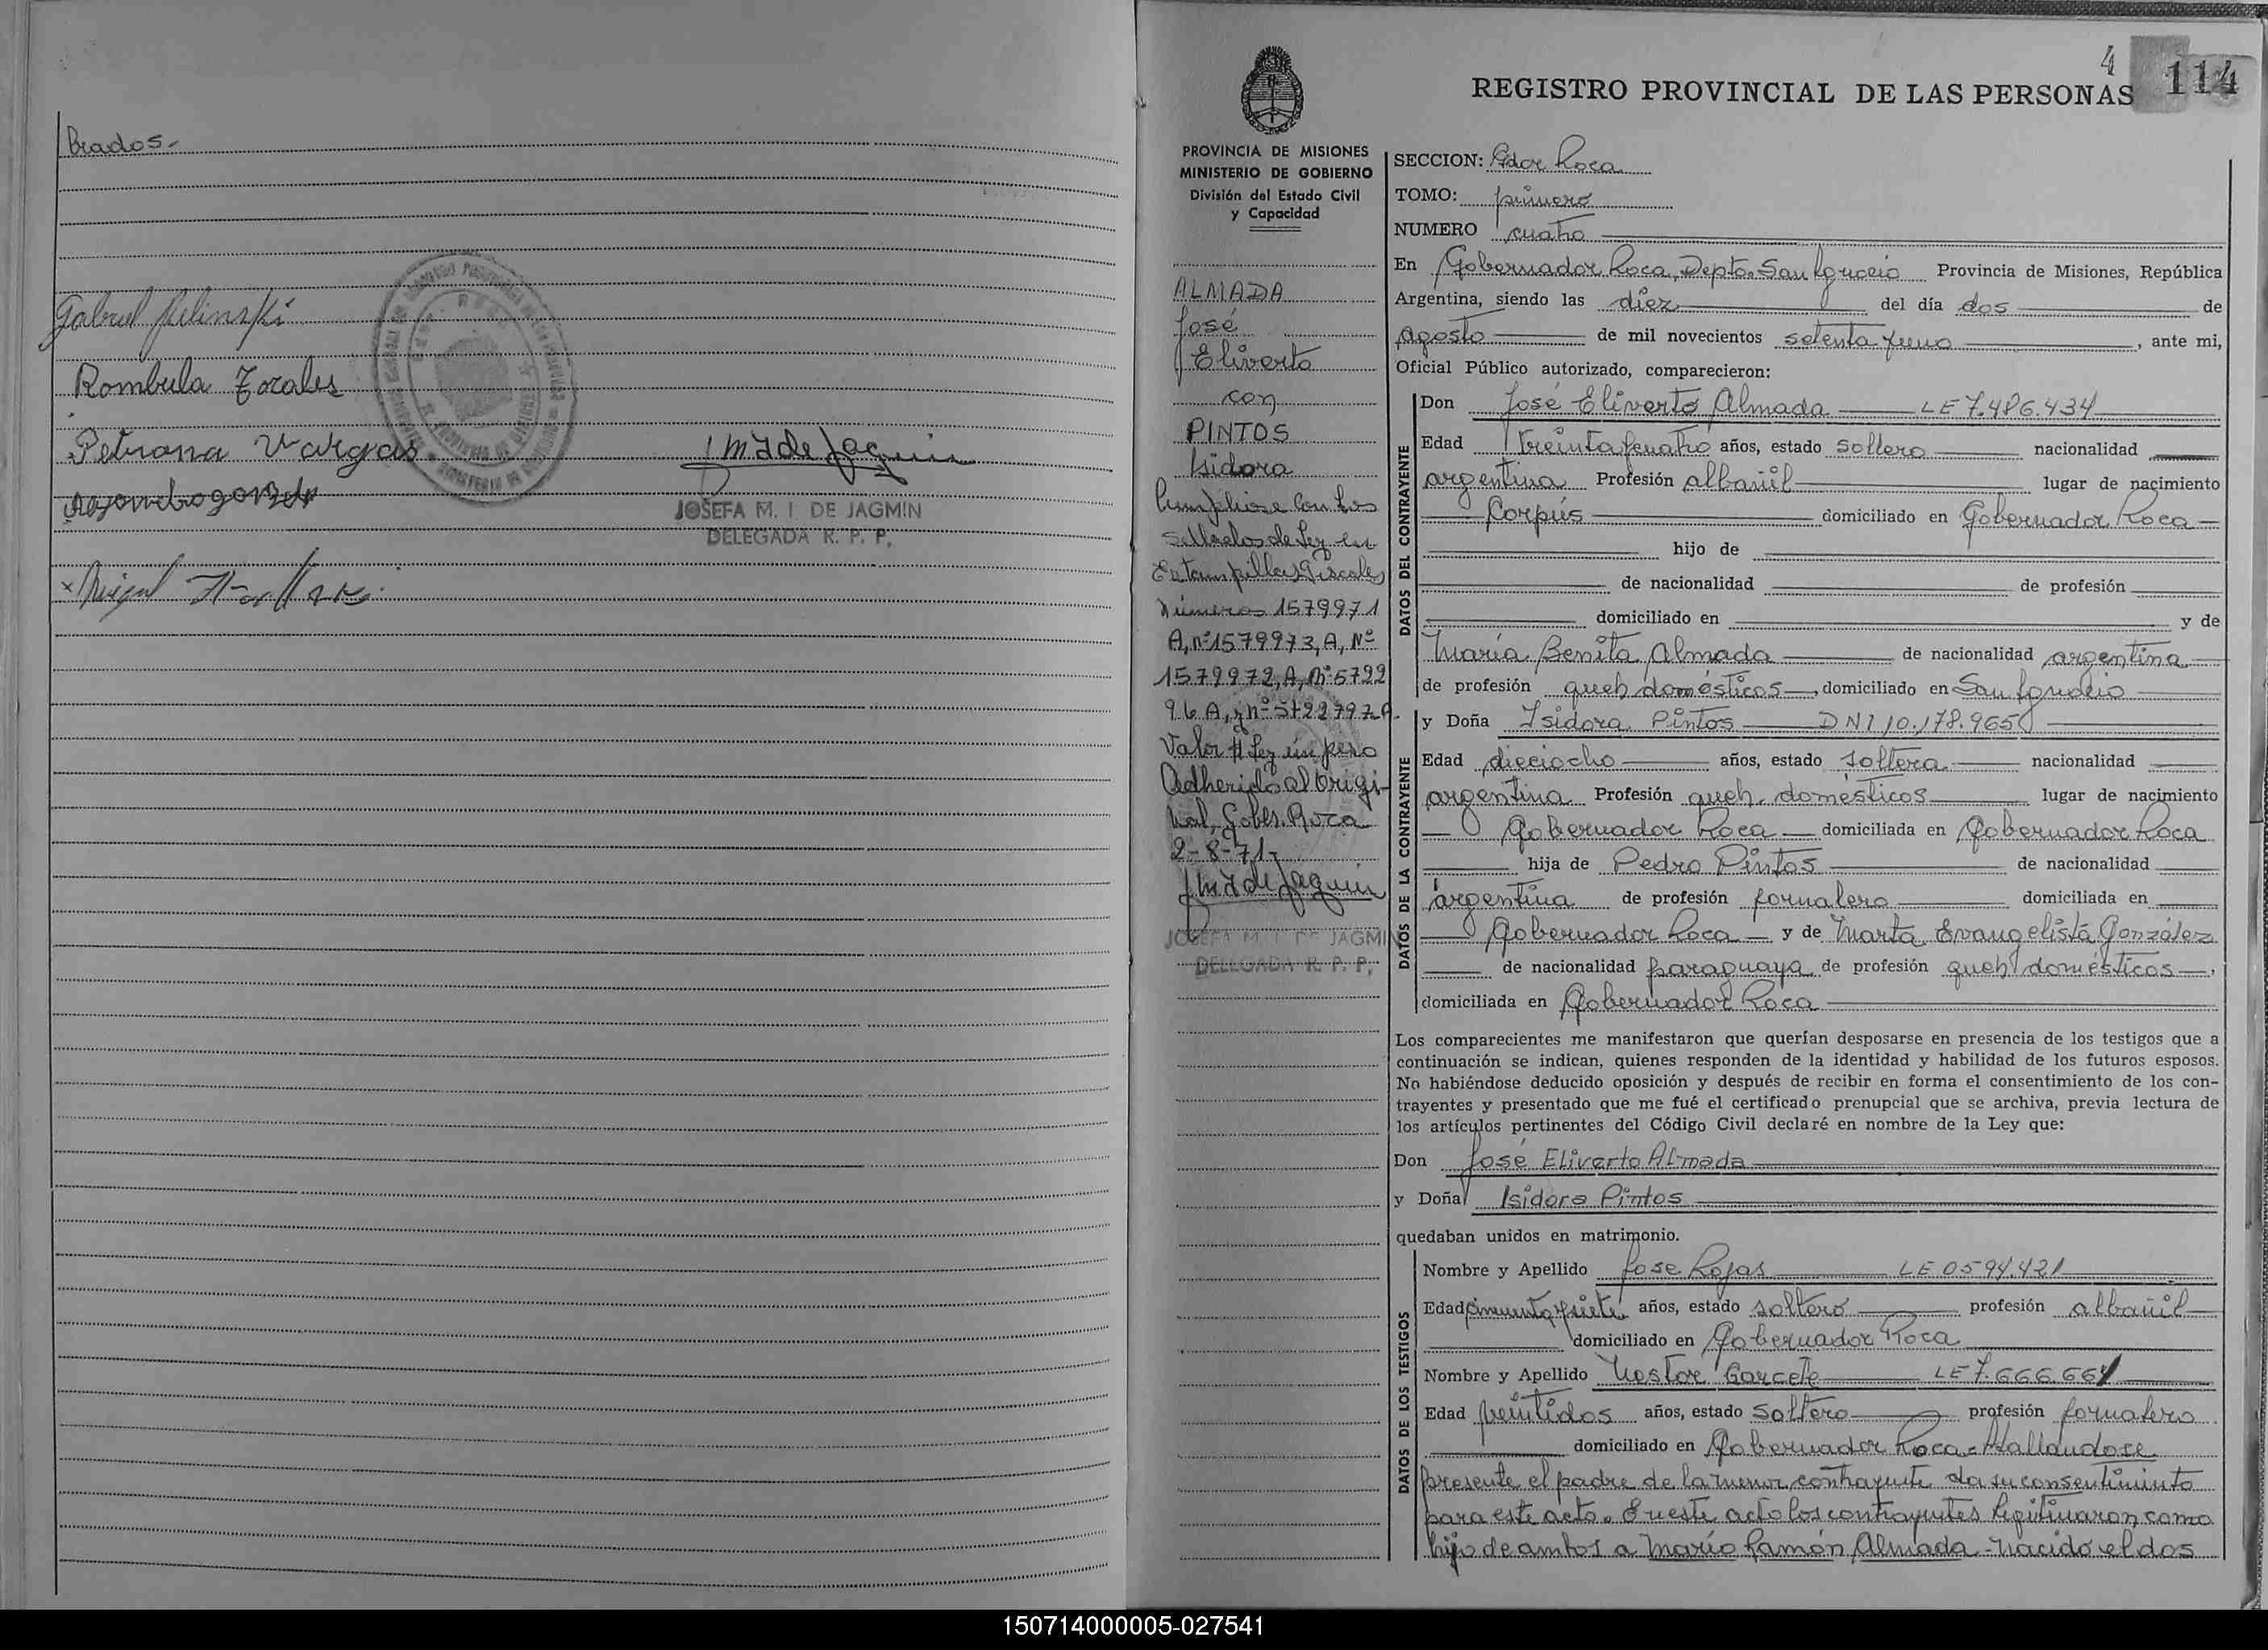 brados.-
Gabriel
Rombula Torales
Petrona Vargas
JOSEFA M. I. DE JAGMIN
DELEGADA R. P. P.
Miguel
4
114
REGISTRO PROVINCIAL DE LAS PERSONAS
PROVINCIA DE MISIONES
MINISTERIO DE GOBIERNO
División del Estado Civil
y Capacidad
ALMADA
José
Eliverto
con
PINTOS
Isidora
Cumpliose con los
sellados de Ley en
Estampillas Fiscales
Números 1579971
A, nº 1579973, A, Nº
1579972, A, Nº 5722
96 A, y nº
Valor $ Ley un peso
Adherido al Origi-
nal, Gober. Roca
2-8-71-
JOSEFA M. I. DE JAGMIN
DELEGADA R. P. P.
SECCION: Gdor Roca
TOMO: primero
NUMERO cuatro
En Gobernador Roca, Depto. San Ignacio Provincia de Misiones, República
Argentina, siendo las diez del día dos de
Agosto de mil novecientos setenta y uno, ante mi,
Oficial Público autorizado, comparecieron:
DATOS DEL CONTRAYENTE
Don José Eliverto Almada LE 7.486.434
Edad treinta y cuatro años, estado soltero nacionalidad
argentina Profesión albañil lugar de nacimiento
Corpus domiciliado en Gobernador Roca
hijo de
de nacionalidad de profesión
domiciliado en y de
María Benita Almada de nacionalidad argentina
de profesión queh domésticos, domiciliado en San Ignacio
DATOS DE LA CONTRAYENTE
y Doña Isidora Pintos DNI 10.178.965
Edad dieciocho años, estado soltera nacionalidad
argentina Profesión queh. domésticos lugar de nacimiento
Gobernador Roca domiciliada en Gobernador Roca
hija de Pedro Pintos de nacionalidad
argentina de profesión jornalero domiciliada en
Gobernador Roca y de Marta Evangelista González
de nacionalidad paraguaya de profesión queh domésticos,
domiciliada en Gobernador Roca
Los comparecientes me manifestaron que querían desposarse en presencia de los testigos que a
continuación se indican, quienes responden de la identidad y habilidad de los futuros esposos.
No habiéndose deducido oposición y después de recibir en forma el consentimiento de los con-
trayentes y presentado que me fué el certificado prenupcial que se archiva, previa lectura de
los artículos pertinentes del Código Civil declaré en nombre de la Ley que:
Don José Eliverto Almada
y Doña Isidora Pintos
quedaban unidos en matrimonio.
DATOS DE LOS TESTIGOS
Nombre y Apellido Jose Rojas LE 0594.421
Edad cincuenta y siete años, estado soltero profesión albañil
domiciliado en Gobernador Roca
Nombre y Apellido Nestor Garcete LE 7.666.661
Edad veintidos años, estado soltero profesión jornalero
domiciliado en Gobernador Roca - Hallandose
presente el padre de la menor contrayente da su consentimiento
para este acto. En este acto los contrayentes legitimaron como
hijo de ambos a Mario Ramón Almada - nacido el dos
150714000005-027541